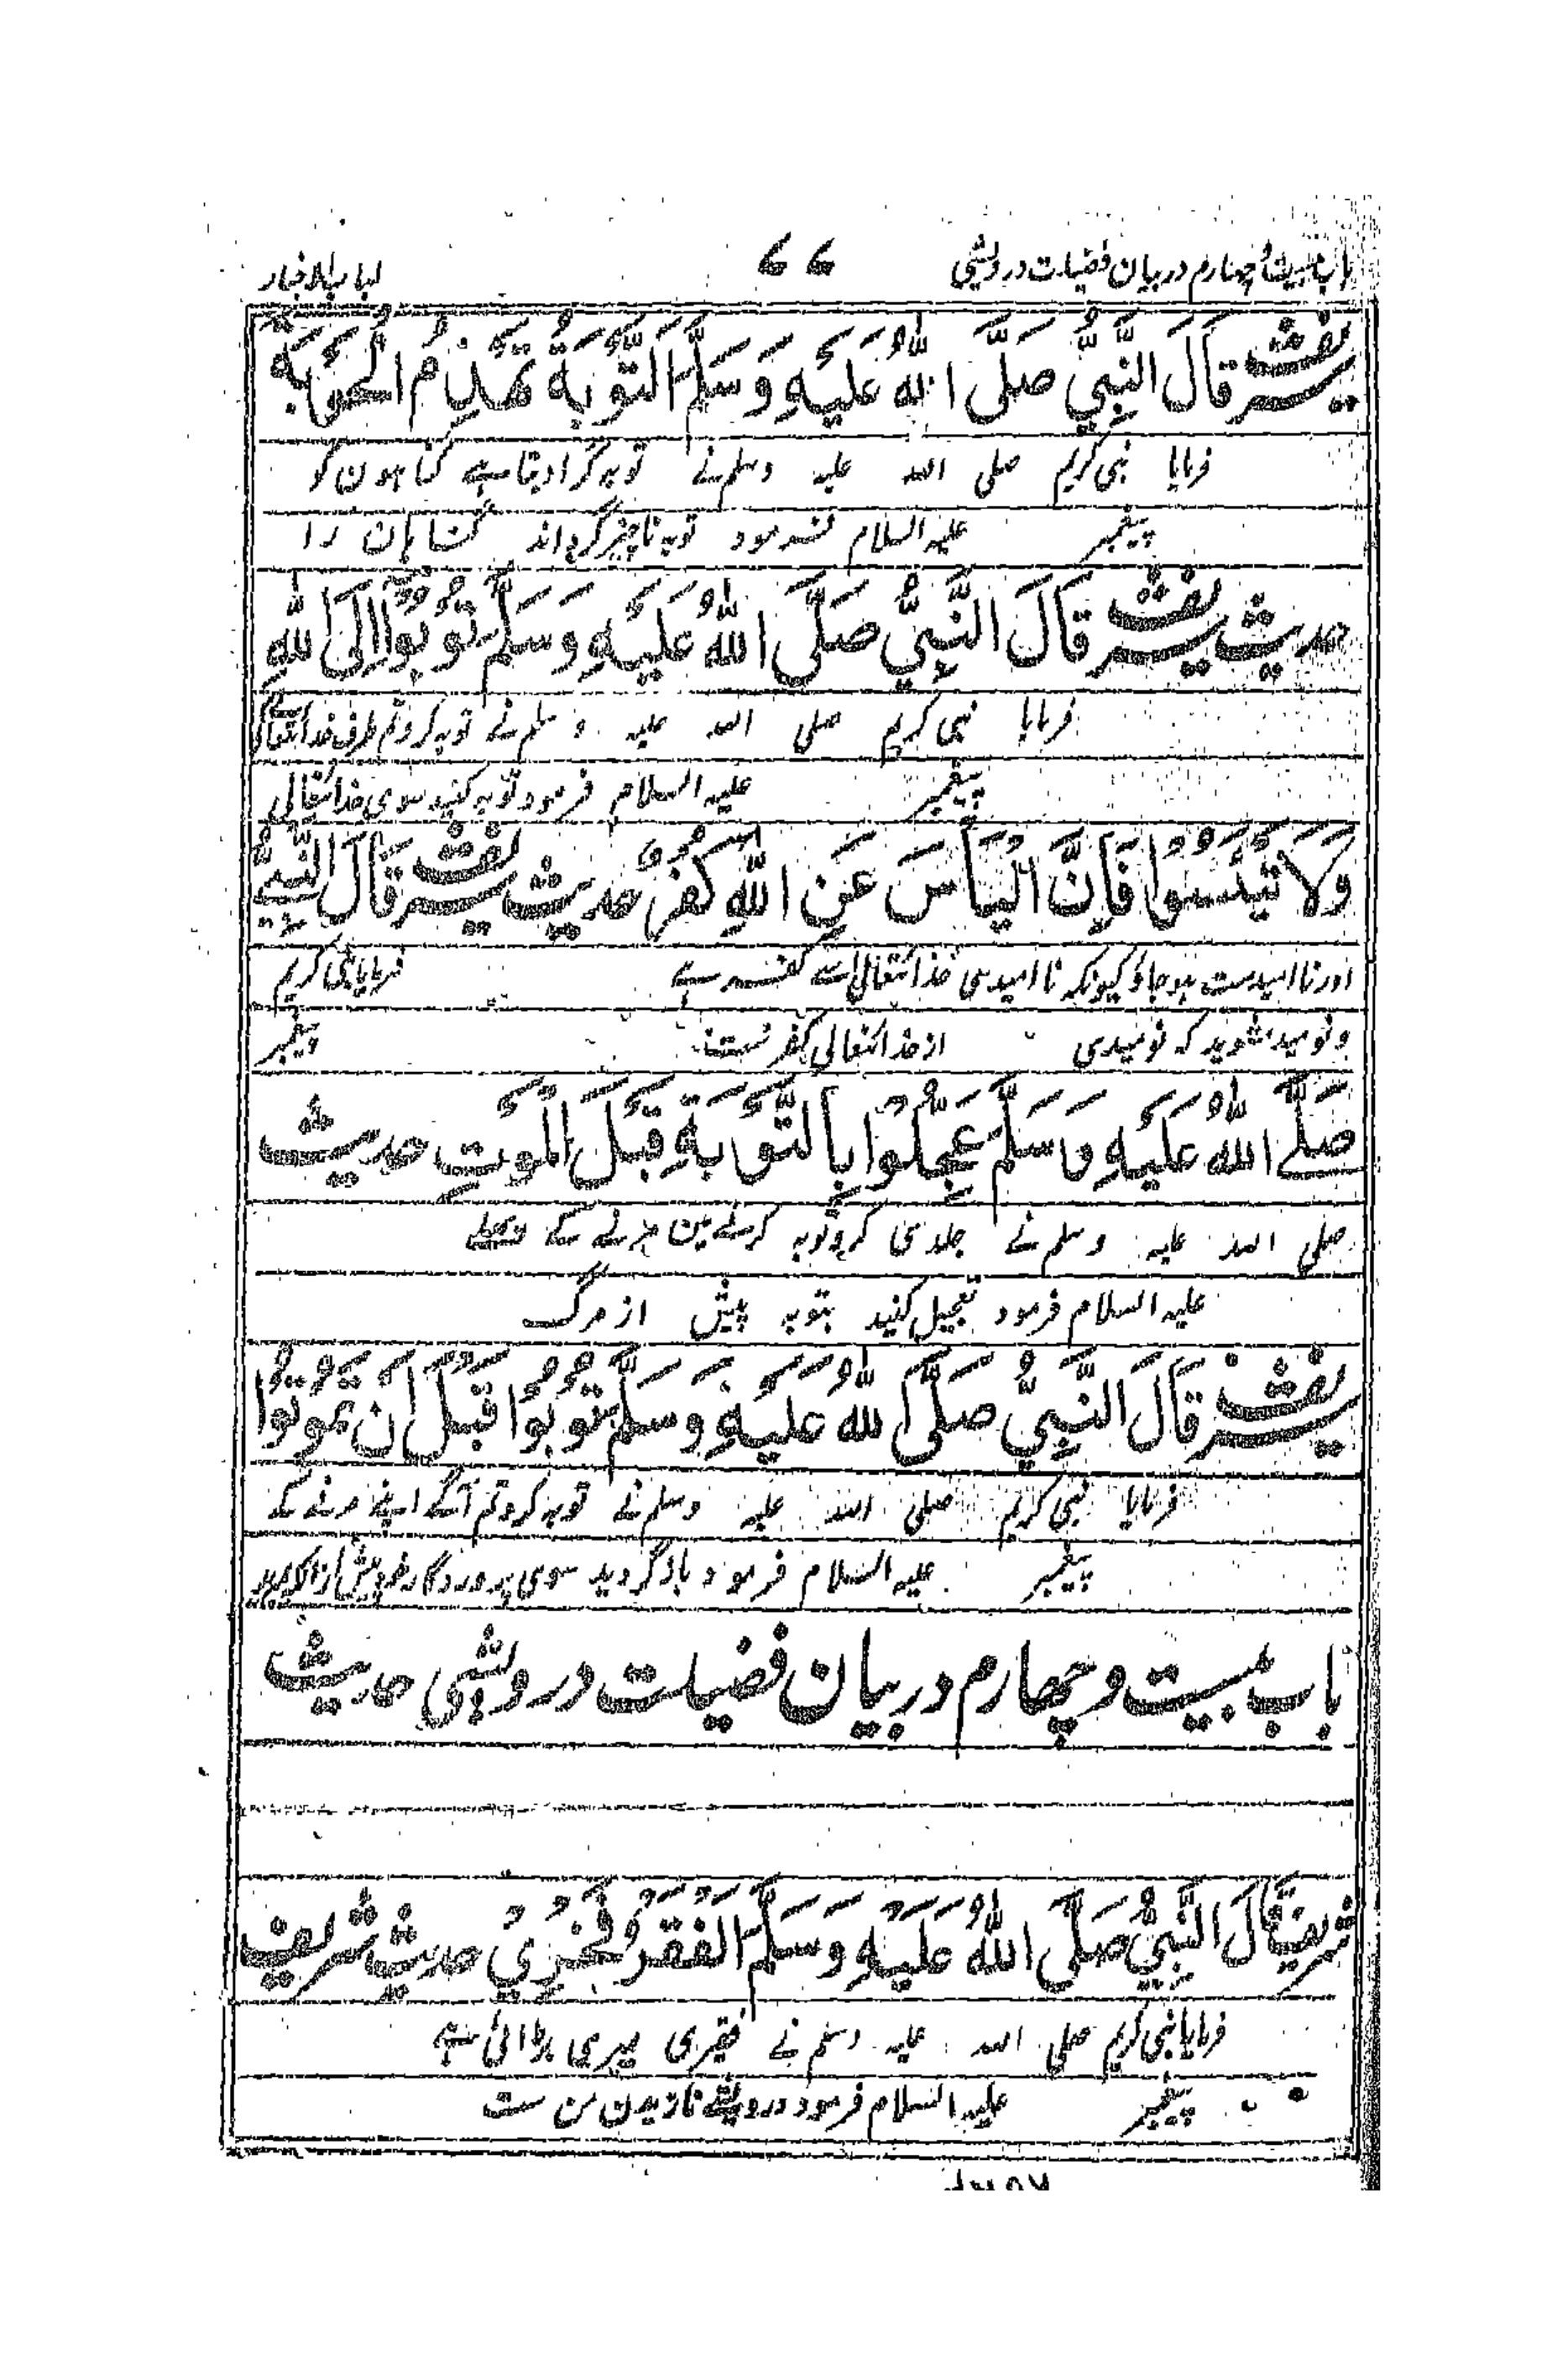 باب بیست و چهارم در بیان فضیلت درویشی ۶۶ لباب الاخبار
شریف قَالَ النَّبِيُّ صَلَّى اللهُ عَلَيْهِ وَسَلَّمَ التَّوْبَةُ تَهْدِمُ الْحَوْبَةَ
فرمایا نبی کریم صلی اللہ علیہ وسلم نے توبہ گرا دیتا ہے گناہون کو
پیغمبر علیہ السلام فرمود توبہ ناچیز گرداند گناہان را
حدیث شریف قَالَ النَّبِيُّ صَلَّى اللهُ عَلَيْهِ وَسَلَّمَ تُوبُوْا اِلَى اللهِ
فرمایا نبی کریم صلی اللہ علیہ وسلم نے توبہ کرو تم طرف خدا تعالیٰ کے
پیغمبر علیہ السلام فرمود توبہ کنید سوی خدایتعالی
وَلَا تَيْئَسُوا فَاِنَّ الْيَأْسَ عَنِ اللهِ كُفْرٌ حدیث شریف قَالَ النَّبِيُّ
اور ناامید مت ہو جاؤ کیونکہ ناامیدی خدا تعالیٰ سے کفر ہے فرمایا نبی کریم
و نومید مشوید کہ نومیدی از خدا تعالی کفرست پیغمبر
صَلَّى اللهُ عَلَيْهِ وَسَلَّمَ عَجِّلُوْا بِالتَّوْبَةِ قَبْلَ الْمَوْتِ حدیث
صلی اللہ علیہ وسلم نے جلدی کرو توبہ کرنے مین مرنے کے پہلے
علیہ السلام فرمود تعجیل کنید بتوبہ پیش از مرگ
شریف قَالَ النَّبِيُّ صَلَّى اللهُ عَلَيْهِ وَسَلَّمَ تُوْبُوْا قَبْلَ اَنْ تَمُوْتُوْا
فرمایا نبی کریم صلی اللہ علیہ وسلم نے توبہ کرو تم آگے اپنے مرنے کے
پیغمبر علیہ السلام فرمود باز گردید سوی پروردگار خود پیش از
باب بیست و چهارم در بیان فضیلت درویشی حدیث
شریف قَالَ النَّبِيُّ صَلَّى اللهُ عَلَيْهِ وَسَلَّمَ اَلْفَقْرُ فَخْرِيْ حدیث شریف
فرمایا نبی کریم صلی اللہ علیہ وسلم نے فقیری میری بڑائی ہے
پیغمبر علیہ السلام فرمود درویشی نازیدن من ست